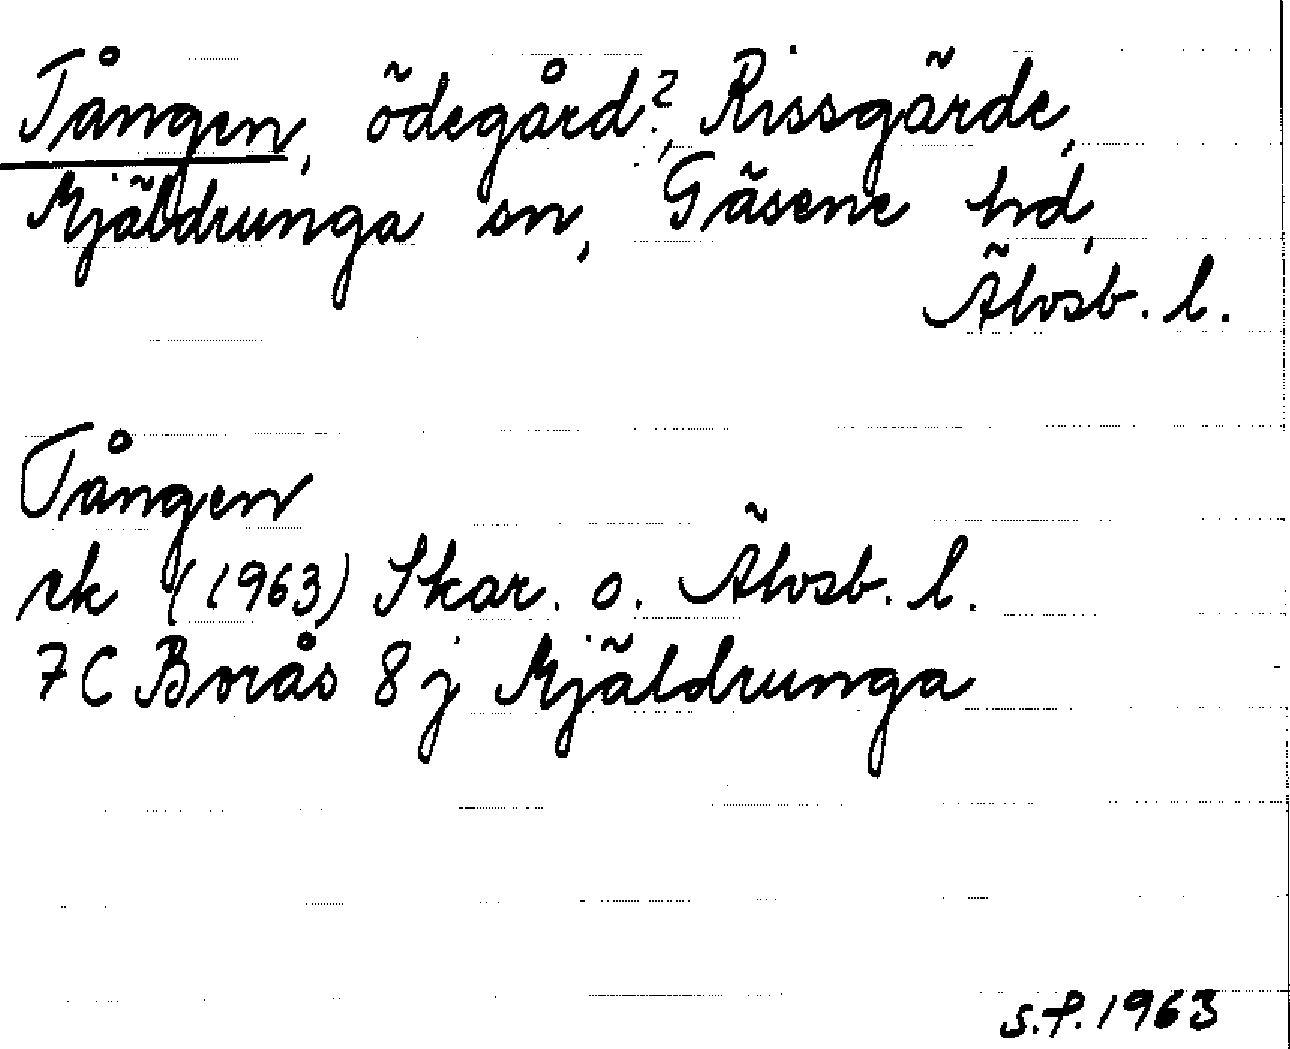 Tången, ödegård?, Rissgärde,
Mjäldrunga sn, Gäsene hd,
Älvsb. l.
Tången
rk (1963) Skar. o. Älvsb. l.
7C Borås 8j Mjäldrunga
S.F. 1963